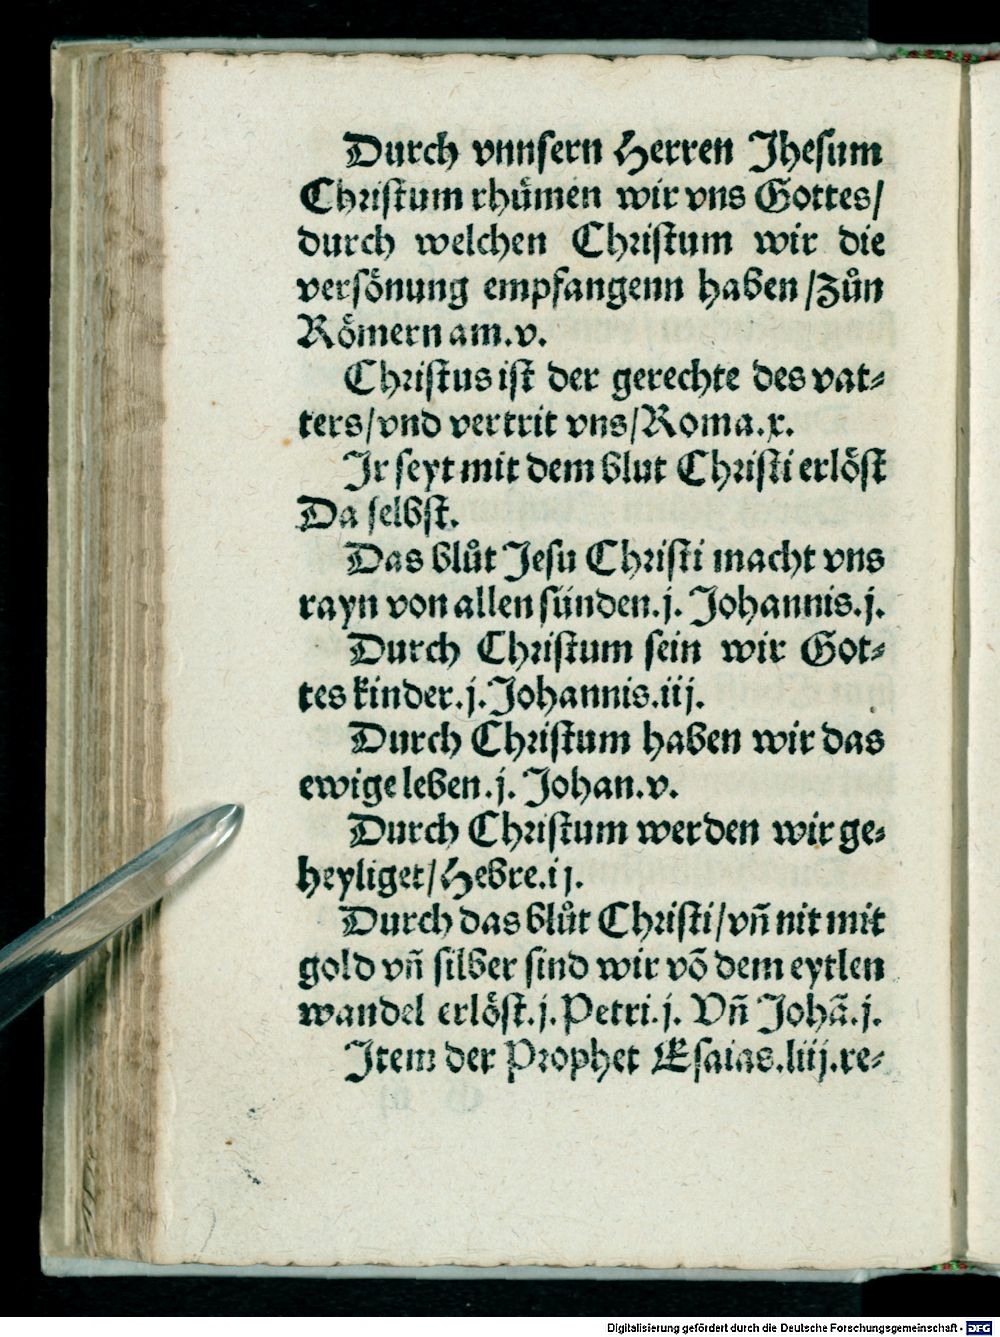 Durch vnnsern Herren Jhesum
Christum rhuͤmen wir vns Gottes/
durch welchen Christum wir die
versoͤnung empfangenn haben/Zuͦn
Roͤmern am.v.
Christus ist der gerechte des vat⸗
ters/vnd vertrit vns/Roma.x.
Jr seyt mit dem blut Christi erloͤst
Da selbst.
Das bluͦt Jesu Christi macht vns
rayn von allen sünden.j. Johannis.j.
Durch Christum sein wir Got⸗
tes kinder.j.Johannis.iij.
Durch Christum haben wir das
ewige leben.j. Johan.v.
Durch Christum werden wir ge⸗
heyliget/Hebre.ij.
Durch das bluͦt Christi/vñ nit mit
gold vñ silber sind wir võ dem eytlen
wandel erloͤst.j.Petri.j. Vñ Johã.j.
Jtem der Prophet Esaias.liij.re⸗
Digitalisierung gefördert durch die Deutsche Forschungsgemeinschaft - DFG